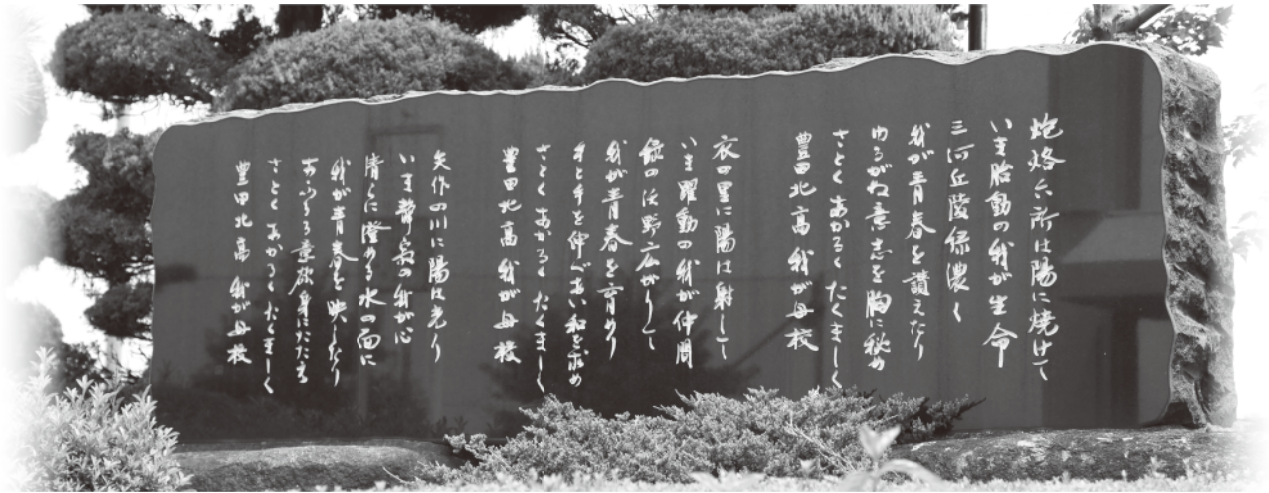 炮烙六所は陽に焼けて
いま胎動の我が生命
三河丘陵緑濃く
我が青春を讃えなり
ゆるがね意志を胸に秘め
さとく あかるく たくましく
豊田北高 我が母校
衣の里に陽は射して
いま躍動の我が仲間
緑の沃野広がりて
我が青春を育めり
手と手を伸べあい和を求め
さとく あかるく たくましく
豊田北高 我が母校
矢作の川に陽は光り
いま静寂の我が心
清らに澄める水の面に
我が青春を映したり
あふるる意欲身にたたえ
さとく あかるく たくましく
豊田北高 我が母校